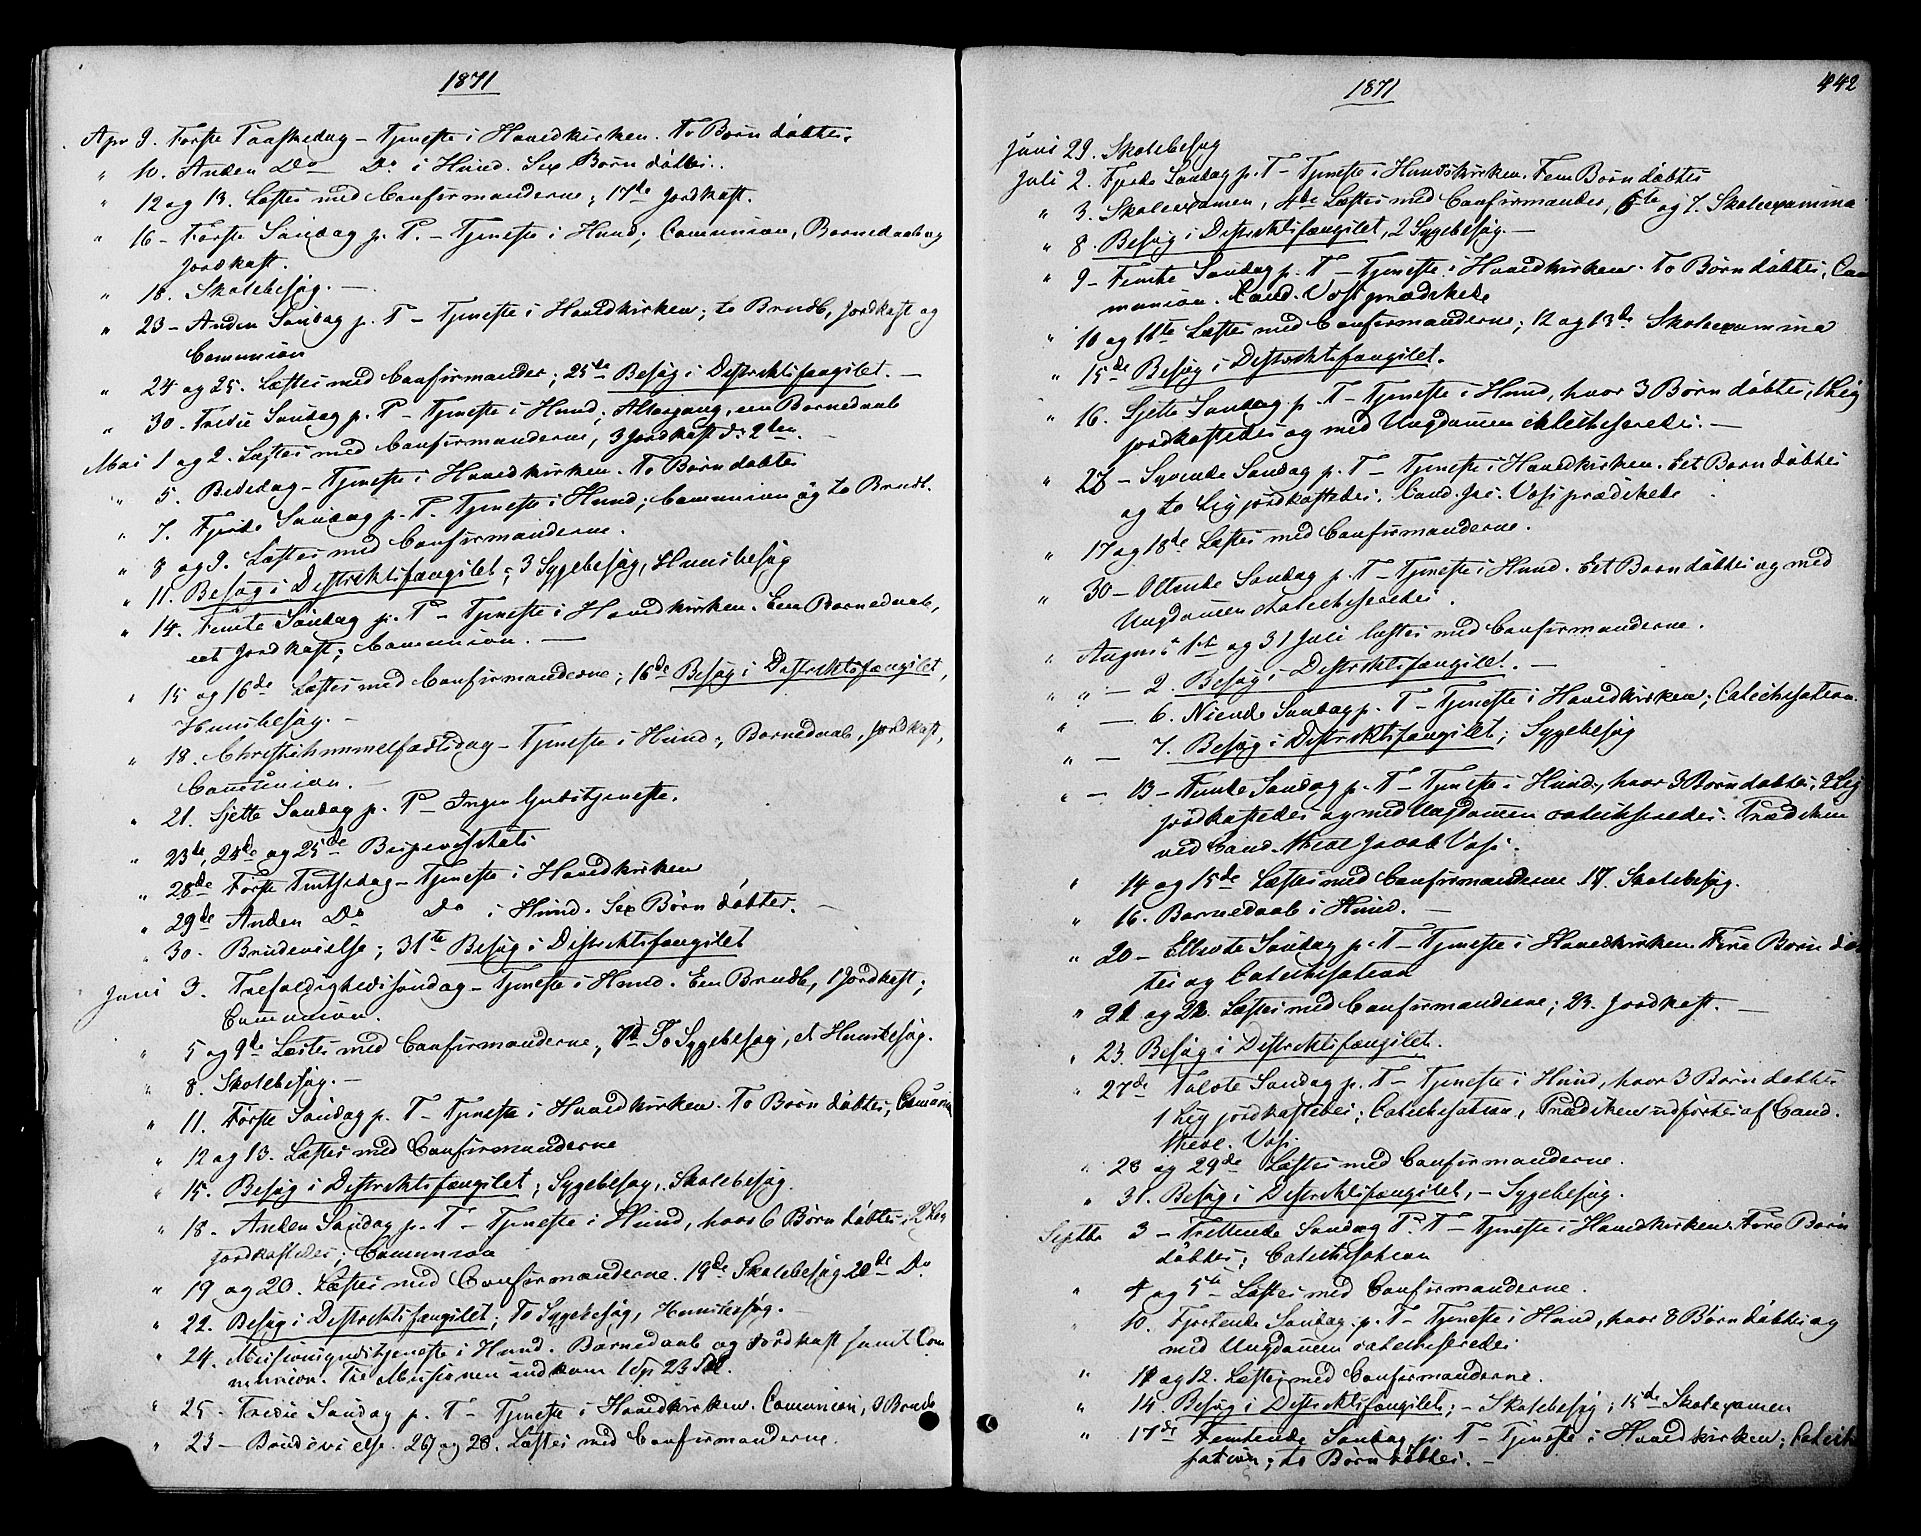 1871
Apr 9. Første Paaskedag – Tjeneste i Hovedkirken. To Børn døbtes.
" 10. Anden Do – Do i Hund. Sex Børn døbtes.
" 12 og 13. Læstes med Confirmanderne; 17de Jordkast.
" 16 – Første Søndag p. P. – Tjeneste i Hund; Communion, Barnedaab og
Jordkast.
" 18. Skolebesøg. –
" 23 – Anden Søndag p. P – Tjeneste i Hovedkirken; to Brudb, Jordkast og
Communion
" 24 og 25. Læstes med Confirmander; 25de Besøg i Distriktsfængslet. –
" 30. Tredie Søndag p. P – Tjeneste i Hund; Altergang, een Barnedaab
Mai 1 og 2. Læstes med Confirmanderne, 3 Jordkast d: 2den. –
" 5. Bededag – Tjeneste i Hovedkirken. To Børn døbtes
" 7. Fjerde Søndag p. P. Tjeneste i Hund; Communion og to Brudb.
" 8 og 9. Læstes med Confirmanderne.
" 11. Besøg i Distriktsfængslet; 3 Sygebesøg, Huusbesøg
" 14. Femte Søndag p. P – Tjeneste i Hovedkirken. Een Barnedaab,
eet Jordkast; Communion. –
" 15 og 16de Læstes med Confirmanderne; 16de Besøg i Distriktsfængslet,
Huusbesøg. –
" 18. Christi himmelfartsdag – Tjeneste i Hund; Barnedaab, Jordkast,
Communion. –
" 21. Sjette Søndag p. P – Ingen Gudstjeneste.
" 23de, 24de og 25de Bispevisitats
" 28de Første Pintsedag – Tjeneste i Hovedkirken
" 29de Anden Do Do i Hund. Sex Børn døbtes. –
" 30. Brudevielse; 31te Besøg i Distriktsfængslet
Juni 3. Trefoldighedssøndag – Tjeneste i Hund. Een Brudb, 1 Jordkast;
Communion.
" 5 og 9de Læstes med Confirmanderne, 7de To Sygebesøg, et Huusbesøg.
" 8. Skolebesøg. –
" 11. Første Søndag p. T – Tjeneste i Hovedkirken. To Børn døbtes, Commun
" 12 og 13. Læstes med Confirmanderne
" 15. Besøg i Distriktsfængslet; Sygebesøg, Skolebesøg.
" 18. Anden Søndag p. T – Tjeneste i Hund, hvor 6 Børn døbtes, 2 Lig
jordkastedes; Communion
" 19 og 20. Læstes med Confirmanderne. 19de Skolebesøg 20de Do
" 22. Besøg i Distriktsfængslet; To Sygebesøg, Huusbesøg. –
" 24. Missionsgudstjeneste i Hund. Barnedaab og Jordkast samt Com
munion. Til Missionen indkom 1 Sp 23 Sk.
" 25. Tredie Søndag p. T – Tjeneste i Hovedkirken. Communion, Brudb
" 23 – Brudevielse. 26 og 28. Læstes med Confirmanderne.
1871
442
Juni 29. Skolebesøg
Juli 2. Fjerde Søndag p. T – Tjeneste i Hundskirken. Fem Børn døbtes
" 3. Skoleexamen, 4de Læstes med Confirmander, 6te og 7. Skoleexamina
" 8. Besøg i Distriktsfængslet, 2 Sygebesøg. –
" 9 – Femte Søndag p. T – Tjeneste i Hovedkirken. To Børn døbtes, Com
munion. Cand. Voss prædikede
" 10 og 11te Læstes med Confirmanderne; 12 og 13de Skoleexamina
" 15de Besøg i Distriktsfængslet.
" 16. Sjette Søndag p. T – Tjeneste i Hund, hvor 3 Børn døbtes, 1 Lig
jordkastedes og med Ungdommen catechiseredes. –
" 23 – Syvende Søndag p. T – Tjeneste i Hovedkirken. Eet Barn døbtes
og to Lig jordkastedes. Cand. Jac. Voss prædikede
" 17 og 18de Læstes med Confirmanderne.
" 30 – Ottende Søndag p. T – Tjeneste i Hund. Eet Barn døbtes og med
Ungdommen catechiseredes.
" August 1ste og 31 Juli læstes med Confirmanderne.
" " – 2. Besøg i Distriktsfængslet. –
" – 6. Niende Søndag p. T – Tjeneste i Hovedkirken; Catechisation.
" – 7. Besøg i Distriktsfængslet; Sygebesøg
" – 13 – Tiende Søndag p. T – Tjeneste i Hund, hvor 3 Børn døbtes, 2 Lig
jordkastedes og med Ungdommen catechiseredes. Prædiken
ved Cand. theol Jacob Voss.
" 14 og 15de Læstes med Confirmanderne 17. Skolebesøg.
" 16. Barnedaab i Hund. –
" 20 – Ellevte Søndag p. T – Tjeneste i Hovedkirken. Fire Børn døb
tes og Catechisation
" 21 og 22. Læstes med Confirmanderne; 23. Jordkast. –
" 23 Besøg i Distriktsfængslet.
" 27de Tolvte Søndag p. T – Tjeneste i Hund, hvor 3 Børn døbtes
1 Lig jordkastedes; Catechisation, Prædiken udførtes af Cand.
theol. Voss.
" 28 og 29de Læstes med Confirmanderne.
" 31. Besøg i Distriktsfængslet, – Sygebesøg.
Septbr 3 – Trettende Søndag p. T – Tjeneste i Hovedkirken. Fire Børn
døbtes; Catechisation
" 4 og 5te Læstes med Confirmanderne.
" 10. Fjortende Søndag p. T – Tjeneste i Hund, hvor 8 Børn døbtes og
med Ungdommen catechiseredes
" 11 og 12. Læstes med Confirmanderne.
" 14. Besøg i Distriktsfængslet; – Skolebesøg; 15de Skoleexamen
" 17de Femtende Søndag p. T – Tjeneste i Hovedkirken; Catechi
sation; to Børn døbtes. –